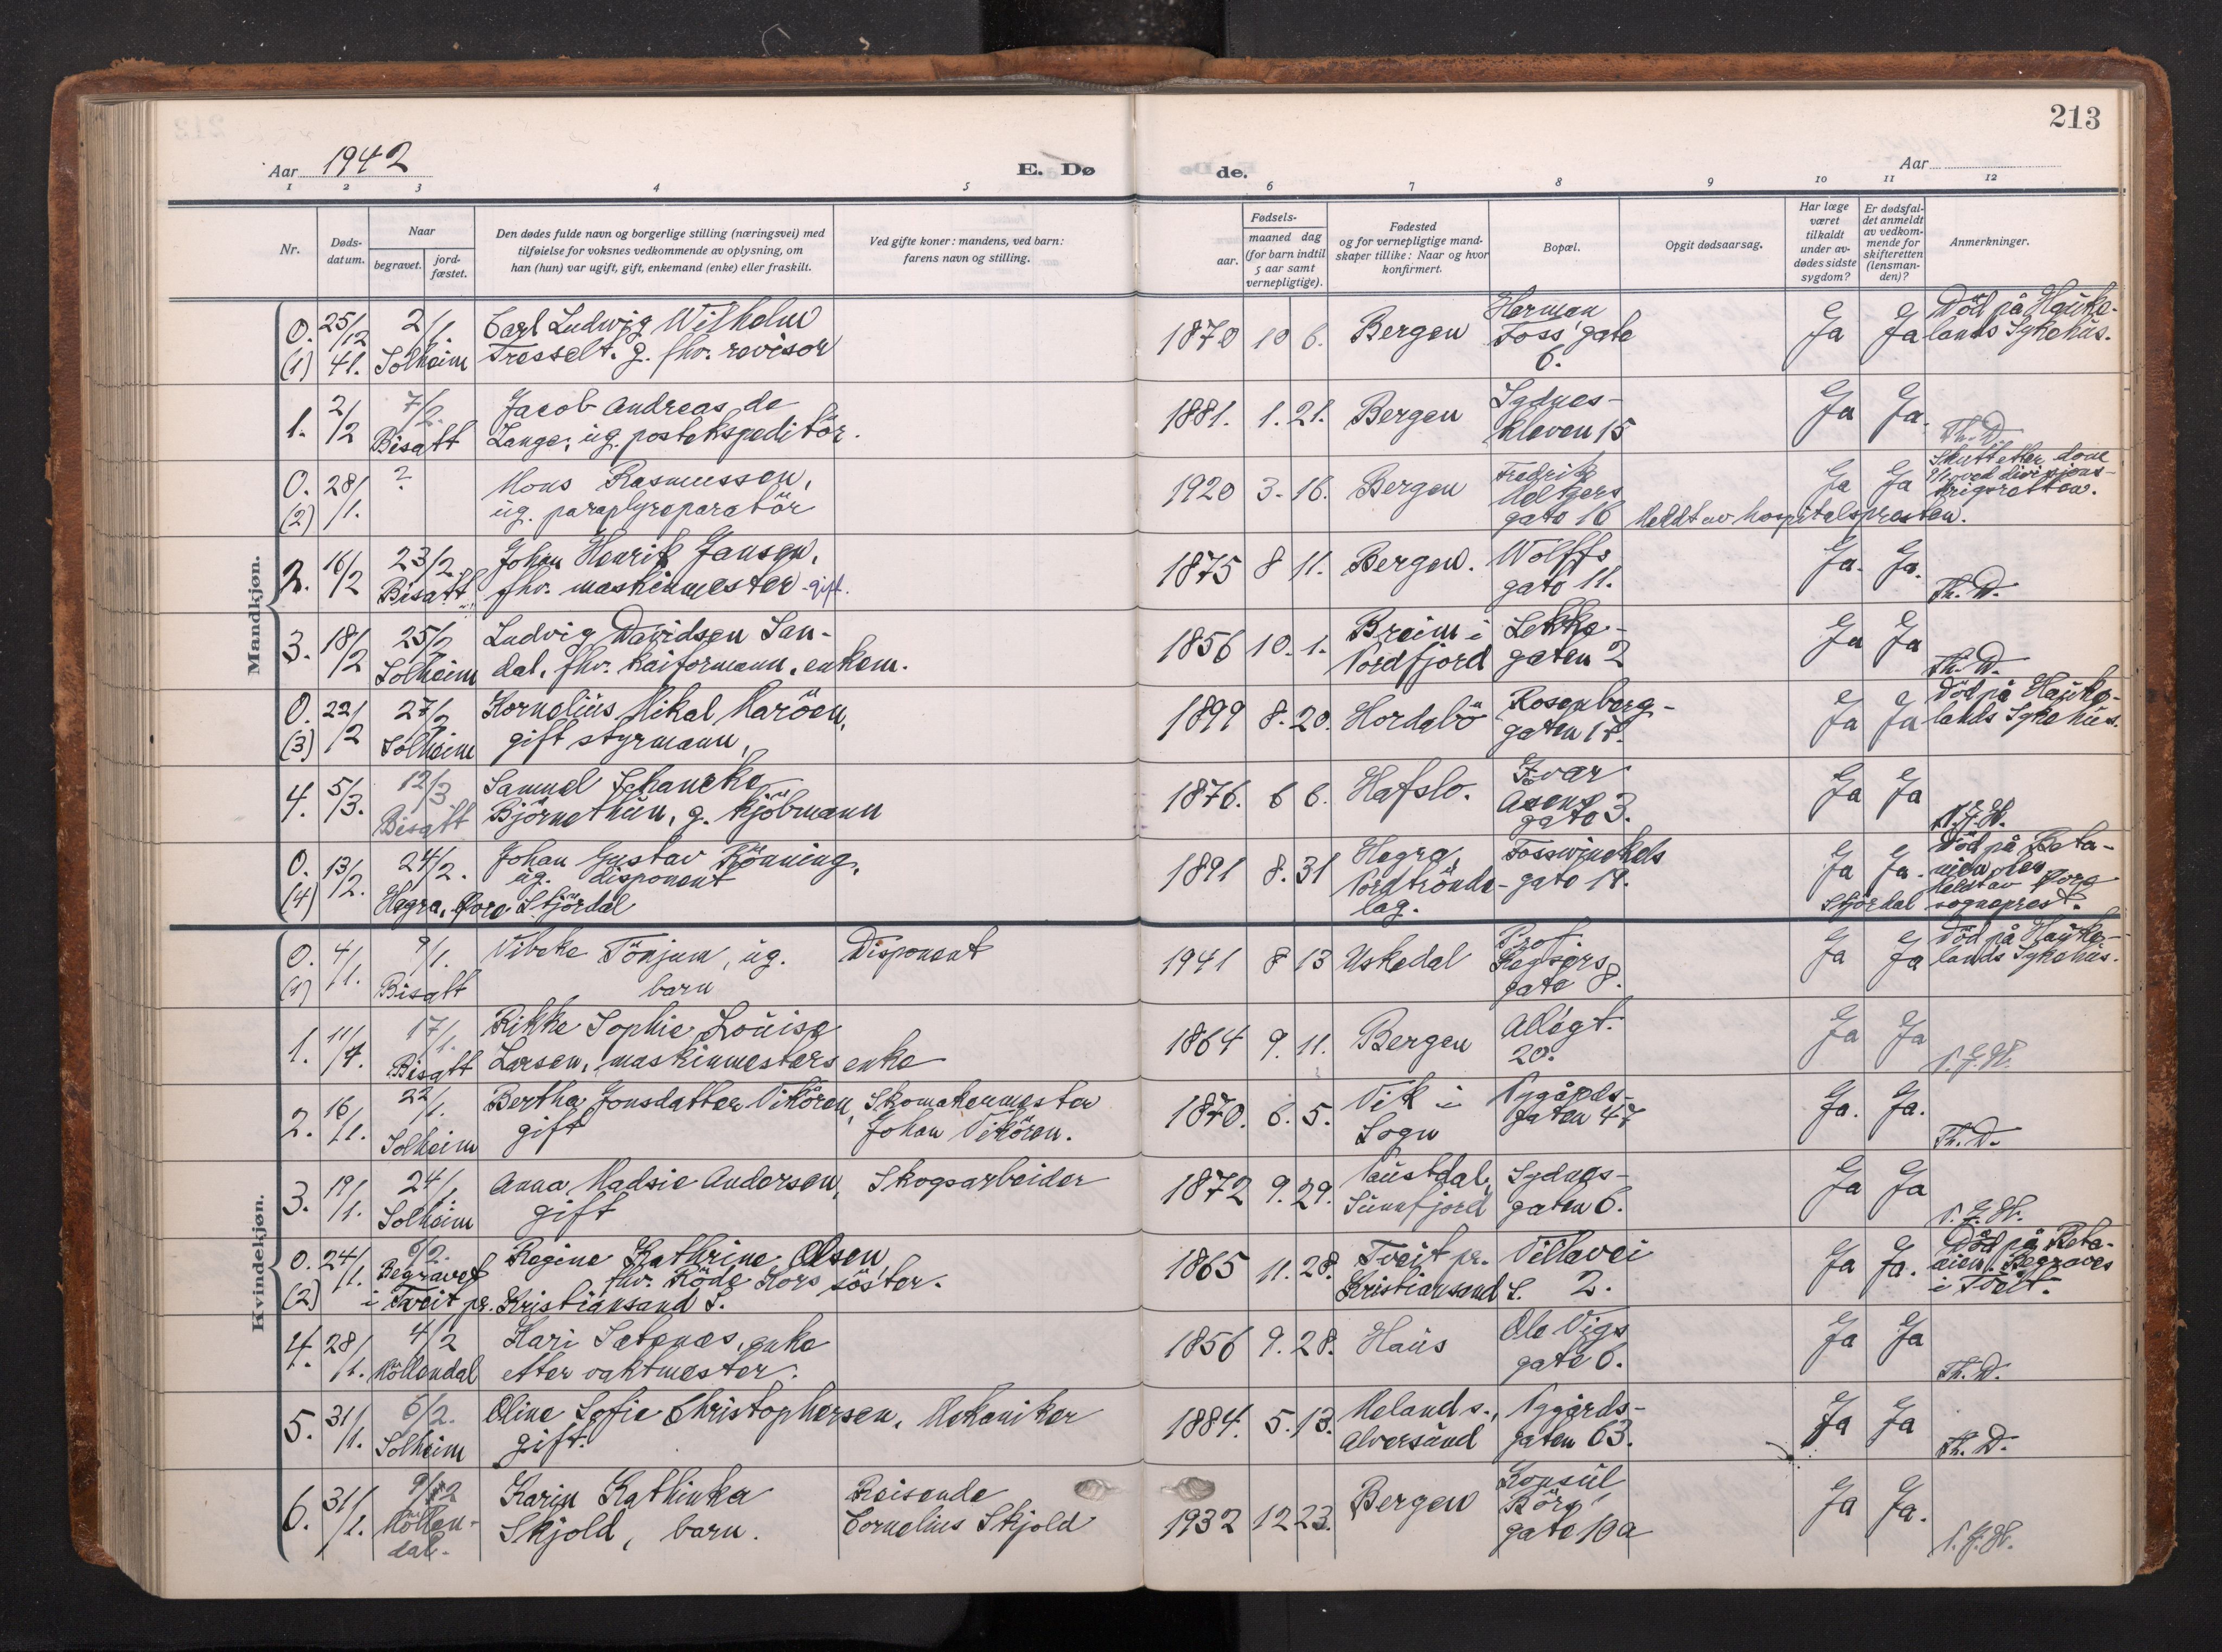 213
Aar 1942
E. Dø
de.
Aar
1 2 3 4 5 6 7 8 9 10 11 12
Nr.
Døds-
datum.
Naar
begravet.
jord-
fæstet.
Den dødes fulde navn og borgerlige stilling (næringsvei) med
tilføielse for voksnes vedkommende av oplysning, om
han (hun) var ugift, gift, enkemand (enke) eller fraskilt.
Ved gifte koner: mandens, ved barn:
farens navn og stilling.
Fødsels-
aar.
maaned dag
(for barn indtil
5 aar samt
vernepligtige).
Fødested
og for vernepligtige mand-
skaper tillike: Naar og hvor
konfirmert.
Bopæl.
Opgit dødsaarsag.
Har læge
været
tilkaldt
under av-
dødes sidste
sygdom?
Er dødsfal-
det anmeldt
av vedkom-
mende for
skifteretten
(lensman-
den)?
Anmerkninger.
Mandkjøn.
0. (1) 25/12 41. 2/1. Solheim
Carl Ludwig Wilhelm
Tresselt. g. fhv. revisor
1870 10 6. Bergen
Herman
Foss' gate
6.
Ja Ja
Död på Hauke-
lands Sykehus.
1. 2/2 7/2. Bisatt
Jacob Andreas de
Lange, ug. postekspeditör.
1881. 1. 21. Bergen
Sydnes-
kleven 15
Ja Ja.
Th. D.
0. (2) 28/1. ?
Mons Rasmussen,
ug. paraplyreparatör
1920 3. 16. Bergen
Fredrik
Meltzers
gate 16
Meldt av hospitalspresten.
Ja Ja
Skutt etter dom
ved divisjons-
krigsretten.
2. 16/2 23/2. Bisatt
Johan Henrik Jansen,
fhv. maskinmester gift.
1875 8 11. Bergen.
Wolffs
gate 11.
Ja. Ja.
Th. D.
3. 18/2 25/2 Solheim
Ludvig Davidsen San-
dal, fhv. kaiformann, enkem.
1856 10. 1.
Breim i
Nordfjord
Lekke-
gaten 2
Ja Ja
Th. D.
0. (3) 22/2 27/2 Solheim
Kornelius Mikal Maröen,
gift styrmann,
1899 8. 20. Hordabö
Rosenberg-
gaten 17.
Ja Ja
Död på Hauke-
lands Sykehus.
4. 5/3. 12/3 Bisatt
Samuel Schancke
Björnethun, g. kjöbmann
1876. 6 6. Hafslo.
Ivar
Åsens
gate 3.
Ja Ja
0. (4) 13/2. 24/2.
Johan Gustav Rönning,
ug. disponent
Hegra, Övre Stjördal
1891 8. 31
Hegra,
Nordtrönde-
lag.
Fosswinckels
gate 14.
Ja Ja.
Död på Beta-
nien
Meldt av Övre
Stjördal sogneprest.
Kvindekjøn.
0. (1) 4/1. 9/1. Bisatt
Vibeke Tönjum, ug.
barn
Disponent
1941 8 13 Uskedal
Prof.
Keysers
gate 8.
Ja Ja
Död på Hauke-
lands Sykehus.
1. 11/1. 17/1. Bisatt
Rikke Sophie Louise
Larsen, maskinmesters enke
1864 9. 11. Bergen
Allégt.
20.
Ja Ja
2. 16/1. 22/1. Solheim
Bertha Jonsdatter Vikören,
gift
Skomakermester
Johan Vikören.
1870. 6. 5.
Vik i
Sogn
Nygårds-
gaten 47
Ja. Ja.
Th. D.
3. 19/1. 24/1. Solheim
Anna Madsie Andersen,
gift
Skogsarbeider
1872 9. 29.
Naustdal,
Sunnfjord
Sydnes-
gaten 6.
Ja Ja
0. (2) 24/1. 6/2. Begravet
Regine Kathrine Olsen,
fhv. Röde Kors söster.
i Tveit pr. Kristiansand S.
1865 11. 28.
Tveit pr.
Kristiansand S.
Villavei
2.
Ja Ja.
Död på Beta-
nien. Begraves
i Tveit.
4. 28/1. 4/2 Möllendal
Kari Setenæs, enke
etter vaktmester.
1856 9. 28. Haus
Ole Vigs
gate 6.
Ja Ja
Th. D.
5. 31/1. 6/2. Solheim
Oline Sofie Christophersen,
gift.
Mekaniker
1884. 5. 13.
Meland s.,
Alversund
Nygårds-
gaten 63.
Ja Ja
Th. D.
6. 31/1. 9/2 Möllen-
dal.
Karin Kathinka
Skjold, barn.
Reisende
Cornelius Skjold
1932 12 23. Bergen
Konsul
Börs
gate 10a
Ja Ja.